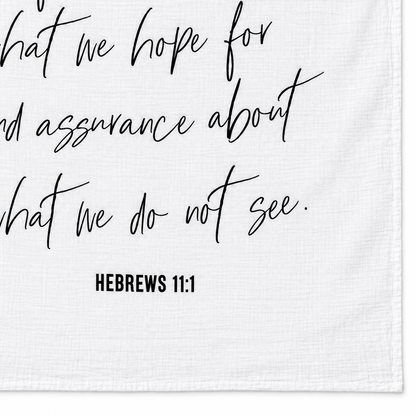 hat we hope for
nd assurance about
what we do not see.
HEBREWS 11:1